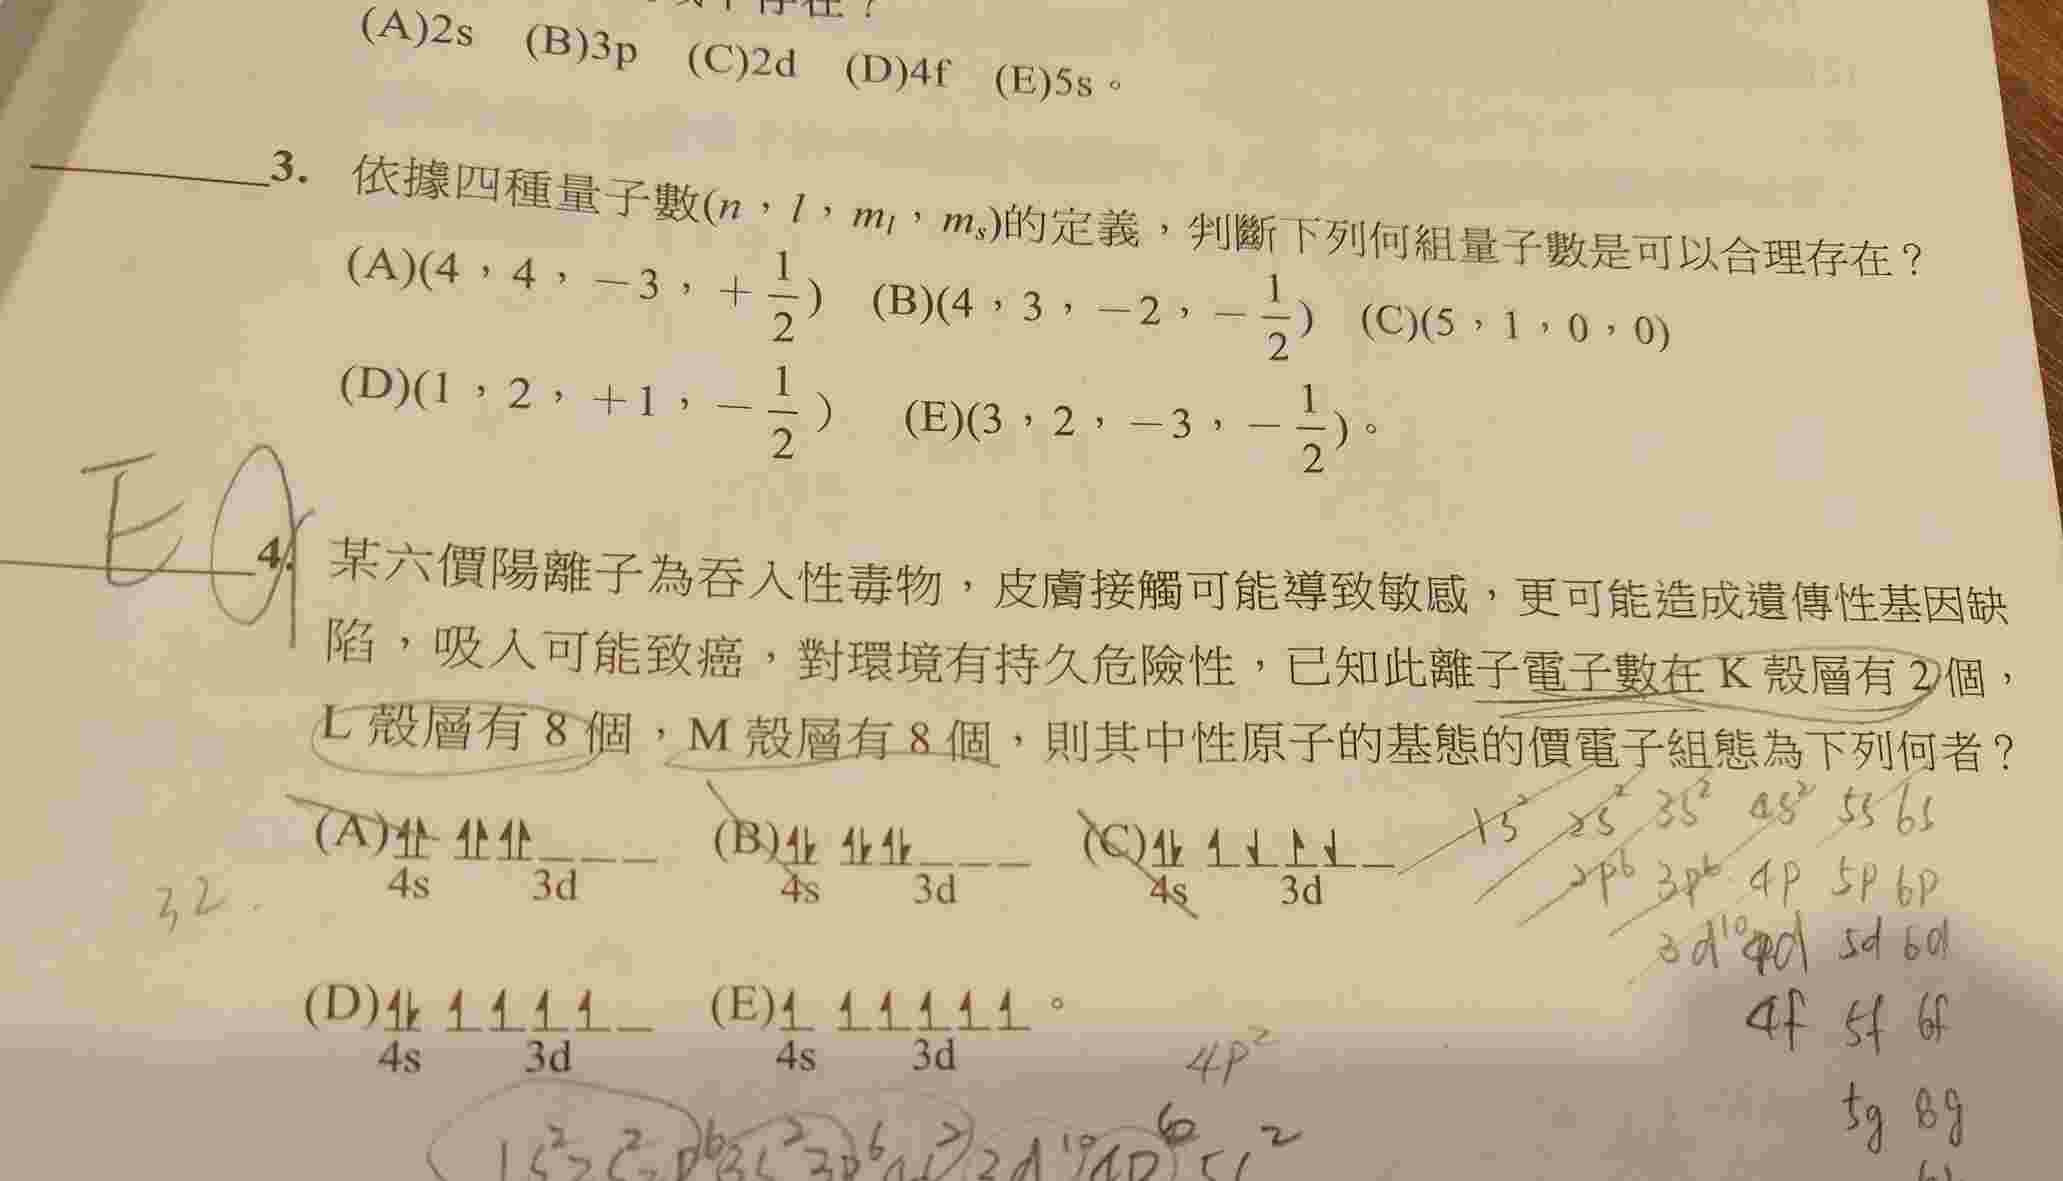 存在？
(A)2s (B)3p (C)2d (D)4f (E)5s。
3. 依據四種量子數(n，l，mₗ，mₛ)的定義，判斷下列何組量子數是可以合理存在？
(A)(4，4，－3，＋1/2) (B)(4，3，－2，－1/2) (C)(5，1，0，0)
(D)(1，2，＋1，－1/2) (E)(3，2，－3，－1/2)。
E
4. 某六價陽離子為吞入性毒物，皮膚接觸可能導致敏感，更可能造成遺傳性基因缺
陷，吸入可能致癌，對環境有持久危險性，已知此離子電子數在 K 殼層有 2 個，
L 殼層有 8 個，M 殼層有 8 個，則其中性原子的基態的價電子組態為下列何者？
(A) (B) (C)
4s 3d 4s 3d 4s 3d
1s² 2s² 3s² 4s² 5s 6s
2p⁶ 3p⁶ 4p 5p 6p
32.
3d¹⁰ 4d 5d 6d
(D) (E) 。
4s 3d 4s 3d
4f 5f 6f
4p²
5g 8g
1s² 2s² 2p⁶ 3s² 3p⁶ 4s² 3d¹⁰ 4p⁶ 5s²